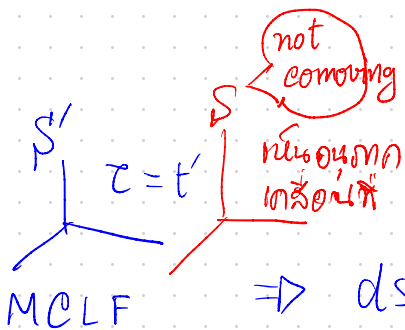 not
comoving
S
S'
τ = t'
เห็นอนุภาค
เคลื่อนที่
MCLF
⇒ ds